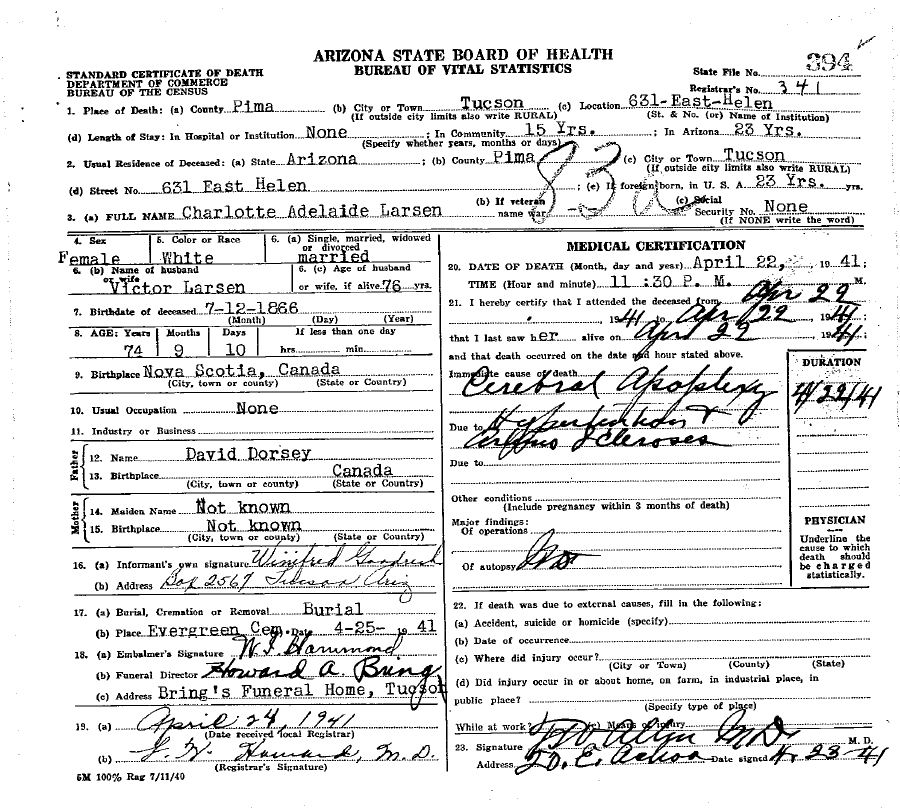 ARIZONA STATE BOARD OF HEALTH
BUREAU OF VITAL STATISTICS
394
State File No.
Registrar's No. 341
STANDARD CERTIFICATE OF DEATH
DEPARTMENT OF COMMERCE
BUREAU OF THE CENSUS
1. Place of Death: (a) County Pima (b) City or Town Tucson (c) Location 631-East-Helen
(If outside city limits also write RURAL) (St. & No. (or) Name of Institution)
(d) Length of Stay: In Hospital or Institution None ; In Community 15 Yrs. ; In Arizona 23 Yrs.
(Specify whether years, months or days)
2. Usual Residence of Deceased: (a) State Arizona ; (b) County Pima (c) City or Town Tucson
(If outside city limits also write RURAL)
(d) Street No. 631 East Helen ; (e) If foreign born, in U. S. A 23 Yrs. yrs.
83a
3. (a) FULL NAME Charlotte Adelaide Larsen (b) If veteran name war - (c) Social Security No. None
(If NONE write the word)
4. Sex Female
5. Color or Race White
6. (a) Single, married, widowed or divorced married
6. (b) Name of husband or wife Victor Larsen
6. (c) Age of husband or wife, if alive 76 yrs.
7. Birthdate of deceased 7-12-1866
(Month) (Day) (Year)
8. AGE: Years Months Days If less than one day
74 9 10 hrs. min.
9. Birthplace Nova Scotia, Canada
(City, town or county) (State or Country)
10. Usual Occupation None
11. Industry or Business
Father
12. Name David Dorsey
13. Birthplace Canada
(City, town or county) (State or Country)
Mother
14. Maiden Name Not known
15. Birthplace Not known
(City, town or county) (State or Country)
16. (a) Informant's own signature Winifred
(b) Address Box 2567 Tucson Ariz
17. (a) Burial, Cremation or Removal Burial
(b) Place Evergreen Cem. Date 4-25- 19 41
18. (a) Embalmer's Signature Hammond
(b) Funeral Director Howard A. Bring
(c) Address Bring's Funeral Home, Tucson
19. (a) April 24, 1941
(Date received local Registrar)
(b) Howard, M.D.
(Registrar's Signature)
5M 100% Rag 7/11/40
MEDICAL CERTIFICATION
20. DATE OF DEATH (Month, day and year) April 22, 19 41;
TIME (Hour and minute) 11 :30 P. M. M.
21. I hereby certify that I attended the deceased from Apr 22
1941 to Apr 22 1941
that I last saw her alive on Apr 22 1941
and that death occurred on the date and hour stated above.
DURATION
Immediate cause of death
Cerebral Apoplexy 4/22/41
Due to Hypertension &
Arterio Scleroses
Due to
Other conditions
(Include pregnancy within 3 months of death)
Major findings:
Of operations
Of autopsy No
PHYSICIAN
Underline the cause to which death should be charged statistically.
22. If death was due to external causes, fill in the following:
(a) Accident, suicide or homicide (specify)
(b) Date of occurrence
(c) Where did injury occur?
(City or Town) (County) (State)
(d) Did injury occur in or about home, on farm, in industrial place, in
public place?
(Specify type of place)
While at work? (e) Means of injury
23. Signature M.D. M. D.
Address E. Date signed 4-23-41